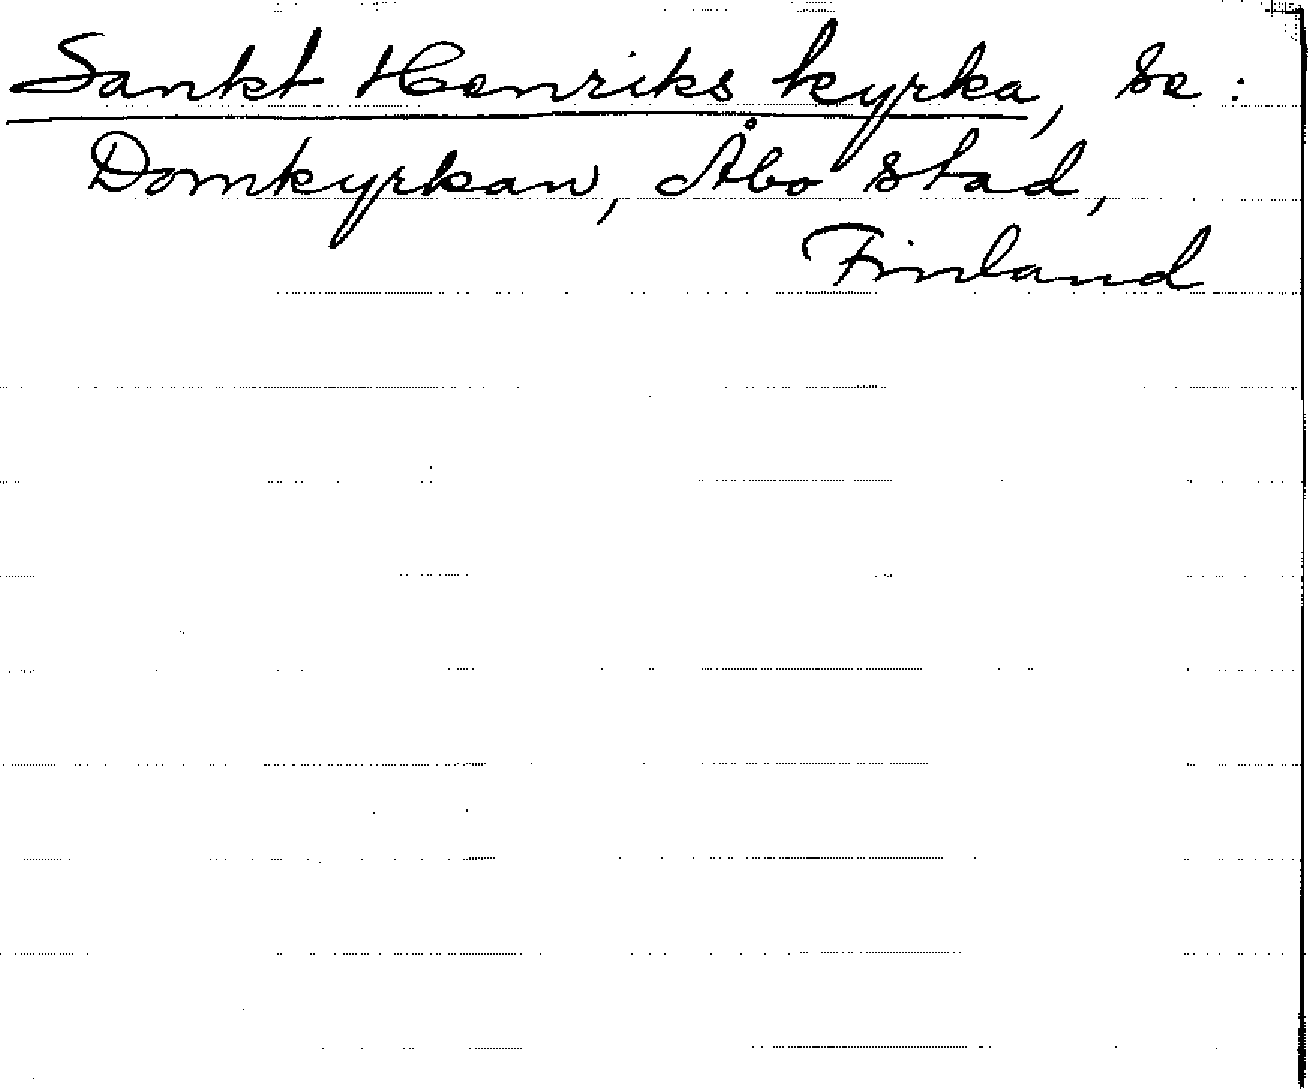 Sankt Henriks kyrka, se:
Domkyrkan, Åbo stad,
Finland